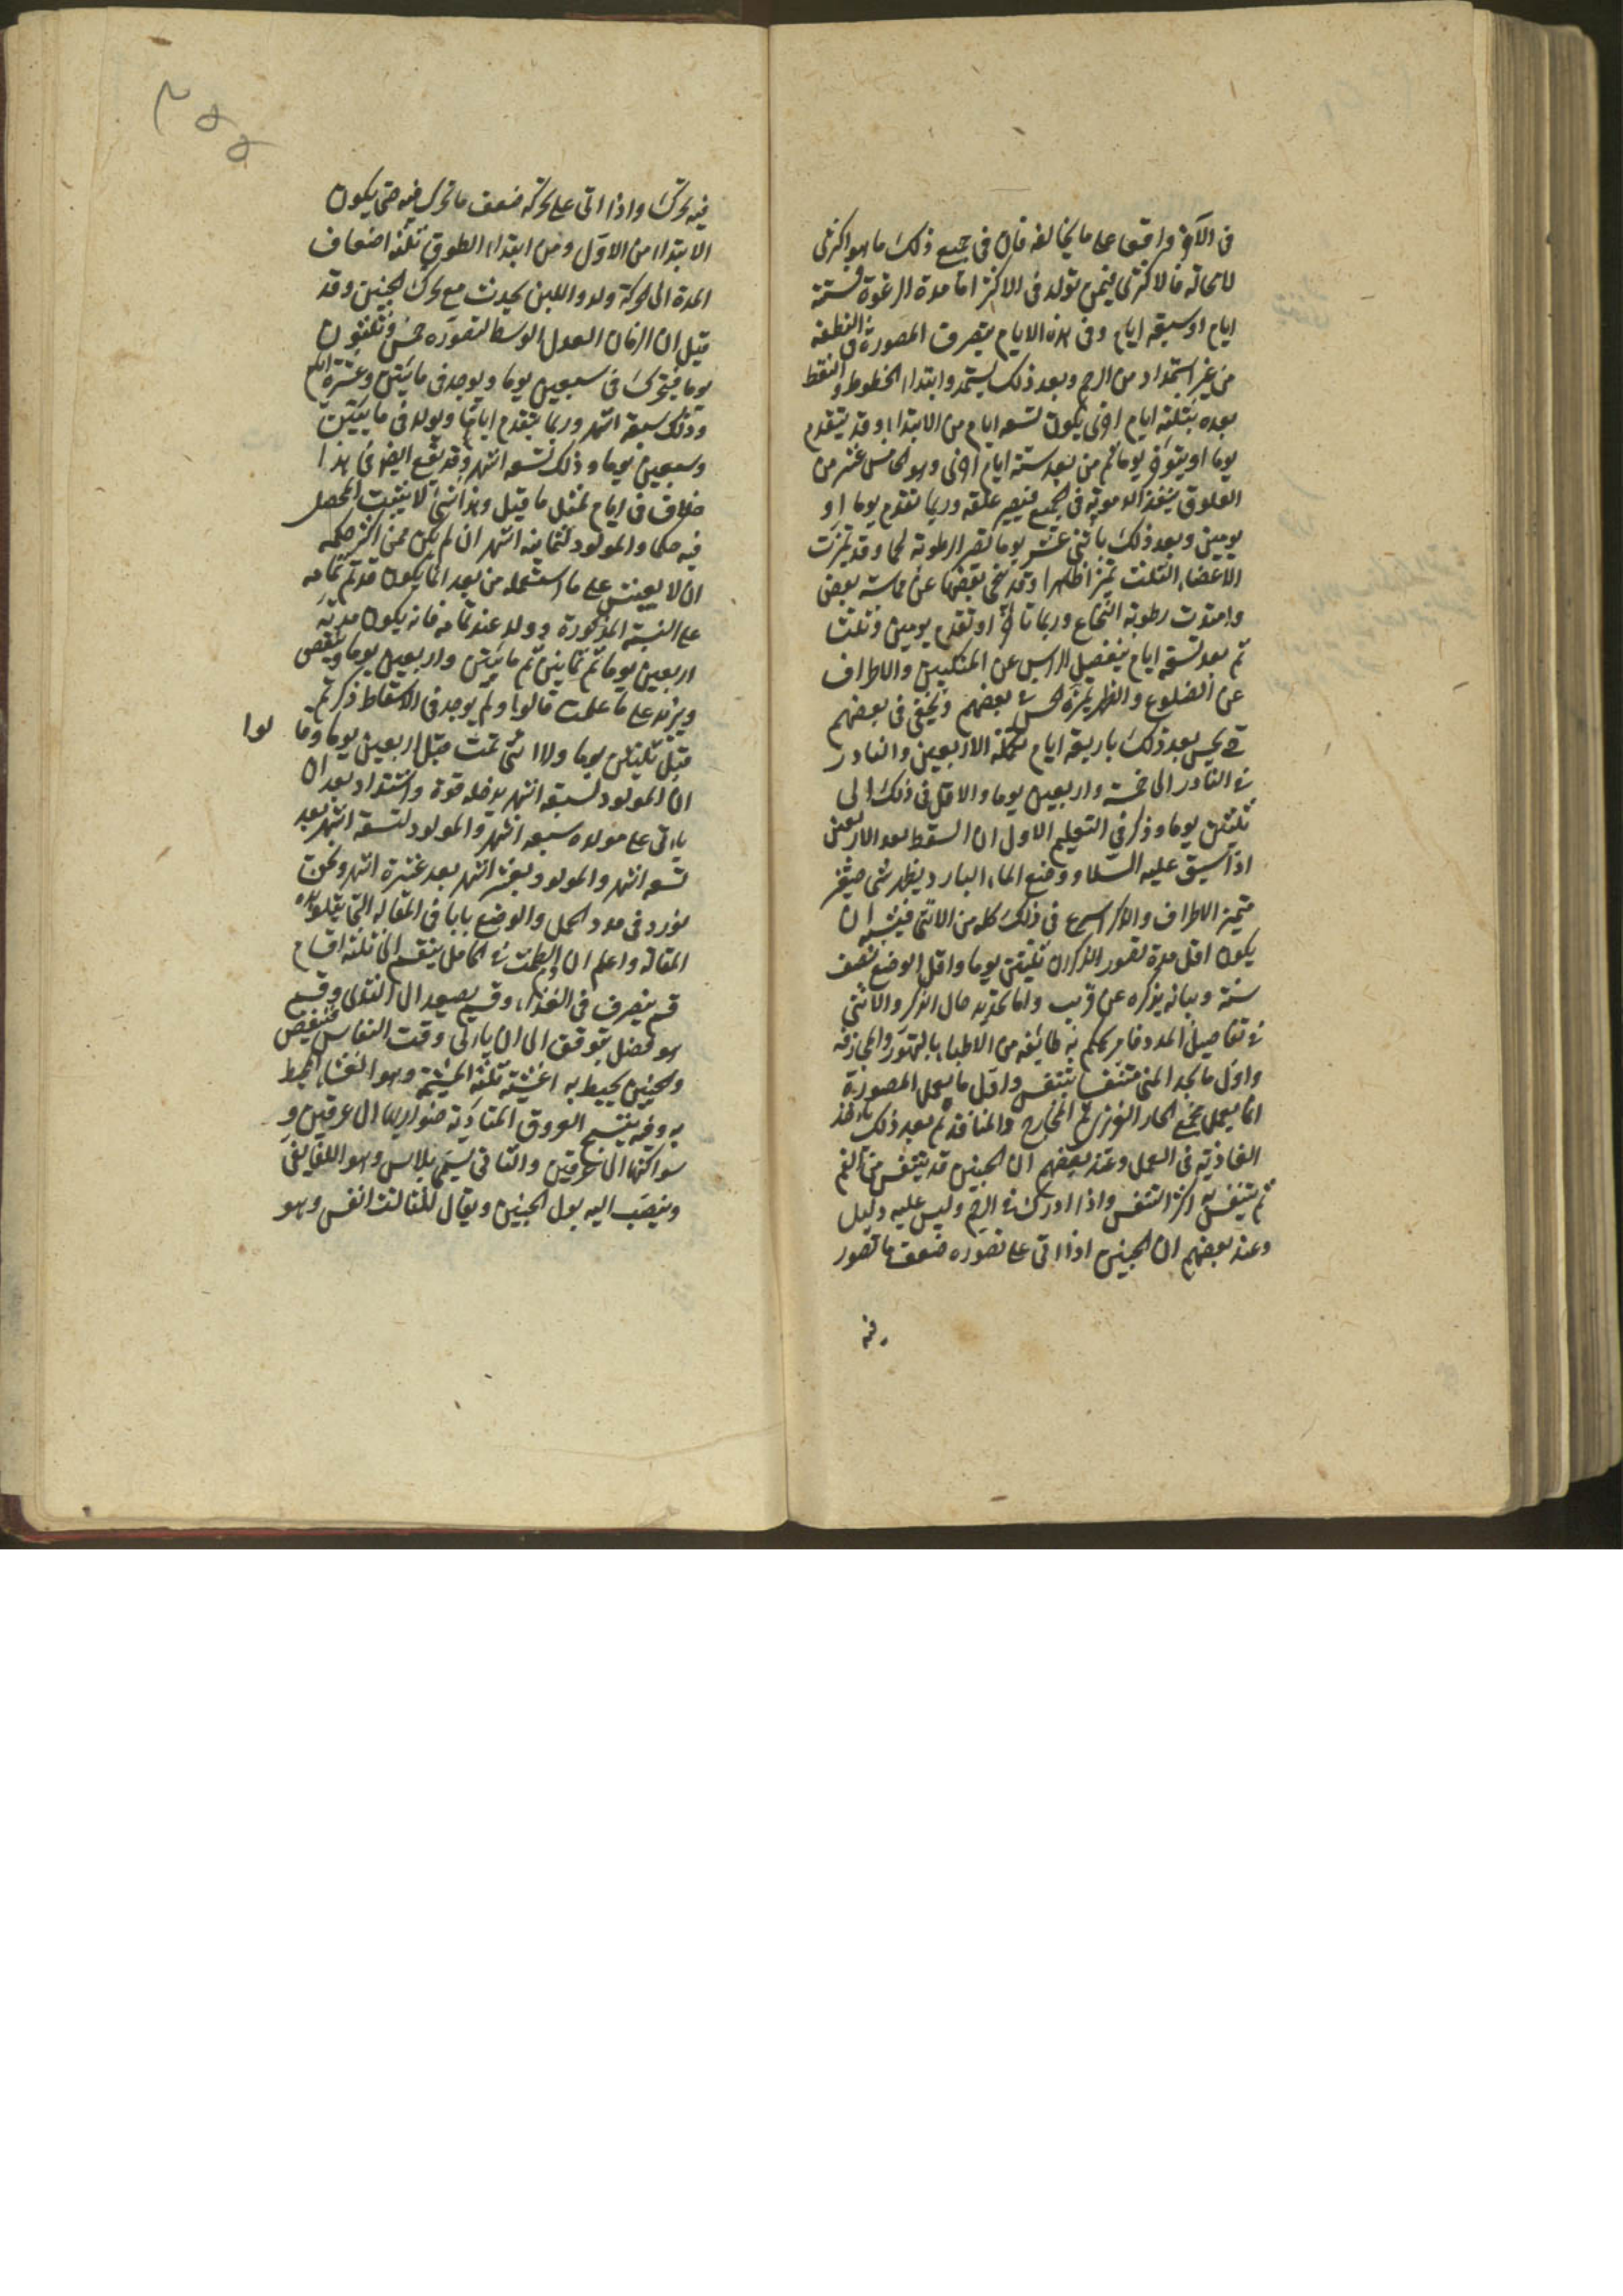 في الآخر واقعا على ما يخالفه فان في جميع ذلك ما هو اكثري
لا محالة فالاكثري فيمن تولد في الاكثر اما مدة الرغوة فستة
ايام او سبعة ايام وفي هذه الايام يتصرف المصورة في النطفة
من غير استمداد من الرحم وبعد ذلك يستمد وابتداء الخطوط والنقط
بعده بثلثة ايام اخرى يكون تسعة ايام من الابتداء وقد يتقدم
يوما او يتوخر يوما ثم من بعد ستة ايام اخرى وهو الخامس عشر من
العلوق ينفذ الدموية في الجميع فيصير علقة وربما تقدم يوما او
يومين وبعد ذلك باثنى عشر يوما تصير الرطوبة لحما وقد تميزت
الاعضاء الثلثة تميزا ظاهرا وقد تنحى بعضها عن مماسة بعض
وامتدت رطوبة النخاع وربما تاخر او تقدم يومين وثلث
ثم بعد تسعة ايام ينفصل الراس عن المنكبين والاطراف
عن الضلوع والبطن تميزا يحس في بعضهم ويخفى في بعضهم
حتى يحس بعد ذلك باربعة ايام تكملة الاربعين والنادر
في النادر الى خمسة واربعين يوما والاقل في ذلك الى
ثلثين يوما وذكر في التعليم الاول ان السقط بعد الاربعين
اذا شق عليه السلا ووضع الماء البارد يظهر شي صغير
متميز الاطراف والذكر اسرع في ذلك كله من الانثى فيشبه ان
يكون اقل مدة تصور الذكران ثلثين يوما واقل الوضع نصف
سنة وبيانه يذكره عن قريب واما تحديد حال الذكر والانثى
في تفاصيل المدد فامر يحكم به طائفة من الاطباء بالتهور والمجازفة
واول ما يجد المنى متنفسا يتنفس واول ما يعمل المصورة
انما يعمل مجمع الحار الغريزي ثم المخارج والمنافذ ثم بعد ذلك ياخذ
الغاذية في العمل وعند بعضهم ان الجنين قد يتنفس من الفم
ثم يتنفس به اكثر التنفس واذا ادرك في الرحم وليس عليه دليل
وعند بعضهم ان الجنين اذا اتى على تصوره ضعف ما تصور
فيه
فيه تحرك واذا اتى على تحركه ضعف ما تحرك فيه حتى يكون
الابتداء من الاول ومن ابتداء العلوق ثلثة اضعاف
المدة الى الحركة ولد واللبن يحدث مع تحرك الجنين وقد
قيل ان الزمان العدل الوسط لتصوره خمس وثلثون
يوما فيتحرك في سبعين يوما ويوجد في مائتين وعشرة ايام
وذلك سبعة اشهر وربما يتقدم اياما ويولد في مائتين
وسبعين يوما وذلك تسعة اشهر وقد يقع ايضا في هذا
خلاف في ايام بمثل ما قيل وهذا شي لا يثبت المحصل
فيه حكما والمولود لثمانية اشهر ان لم يكن ممن اكثر حكمه
ان لا يعيش على ما ستعلمه من بعد انما يكون قد تم تمامه
على النسبة المذكورة وولد عند تمامه فانه يكون مدته
اربعين يوما ثم ثمانين ثم مائتين واربعين يوما وينقص
ويزيد على ما علمت قالوا ولم يوجد في الاسقاط ذكر تم
قبل ثلثين يوما ولا انثى تمت قبل اربعين يوما وقالوا
ان المولود لسبعة اشهر يدخله قوة واشتداد بعد ان
ياتي على مولده سبعة اشهر والمولود لتسعة اشهر بعد
تسعة اشهر والمولود لعشرة اشهر بعد عشرة اشهر ونحن
نورد في مدد الحمل والوضع بابا في المقالة التي يتلو هذه
المقالة واعلم ان الطمث في الحامل ينقسم الى ثلثة اقسام
قسم ينصرف في الغذاء وقسم يصعد الى الثدى وقسم
هو فضل يتوقف الى ان ياتي وقت النفاس فينتفض
والجنين يحيط به اغشية ثلثة المشيمة وهو الغشاء المحيط
به وفيه ينتسج العروق المتادية ضواربها الى عرقين و
سواكنها الى عرقين والثاني يسمى بلاس وهو اللفايفي
وينصب اليه بول الجنين ويقال للثالث انفس وهو